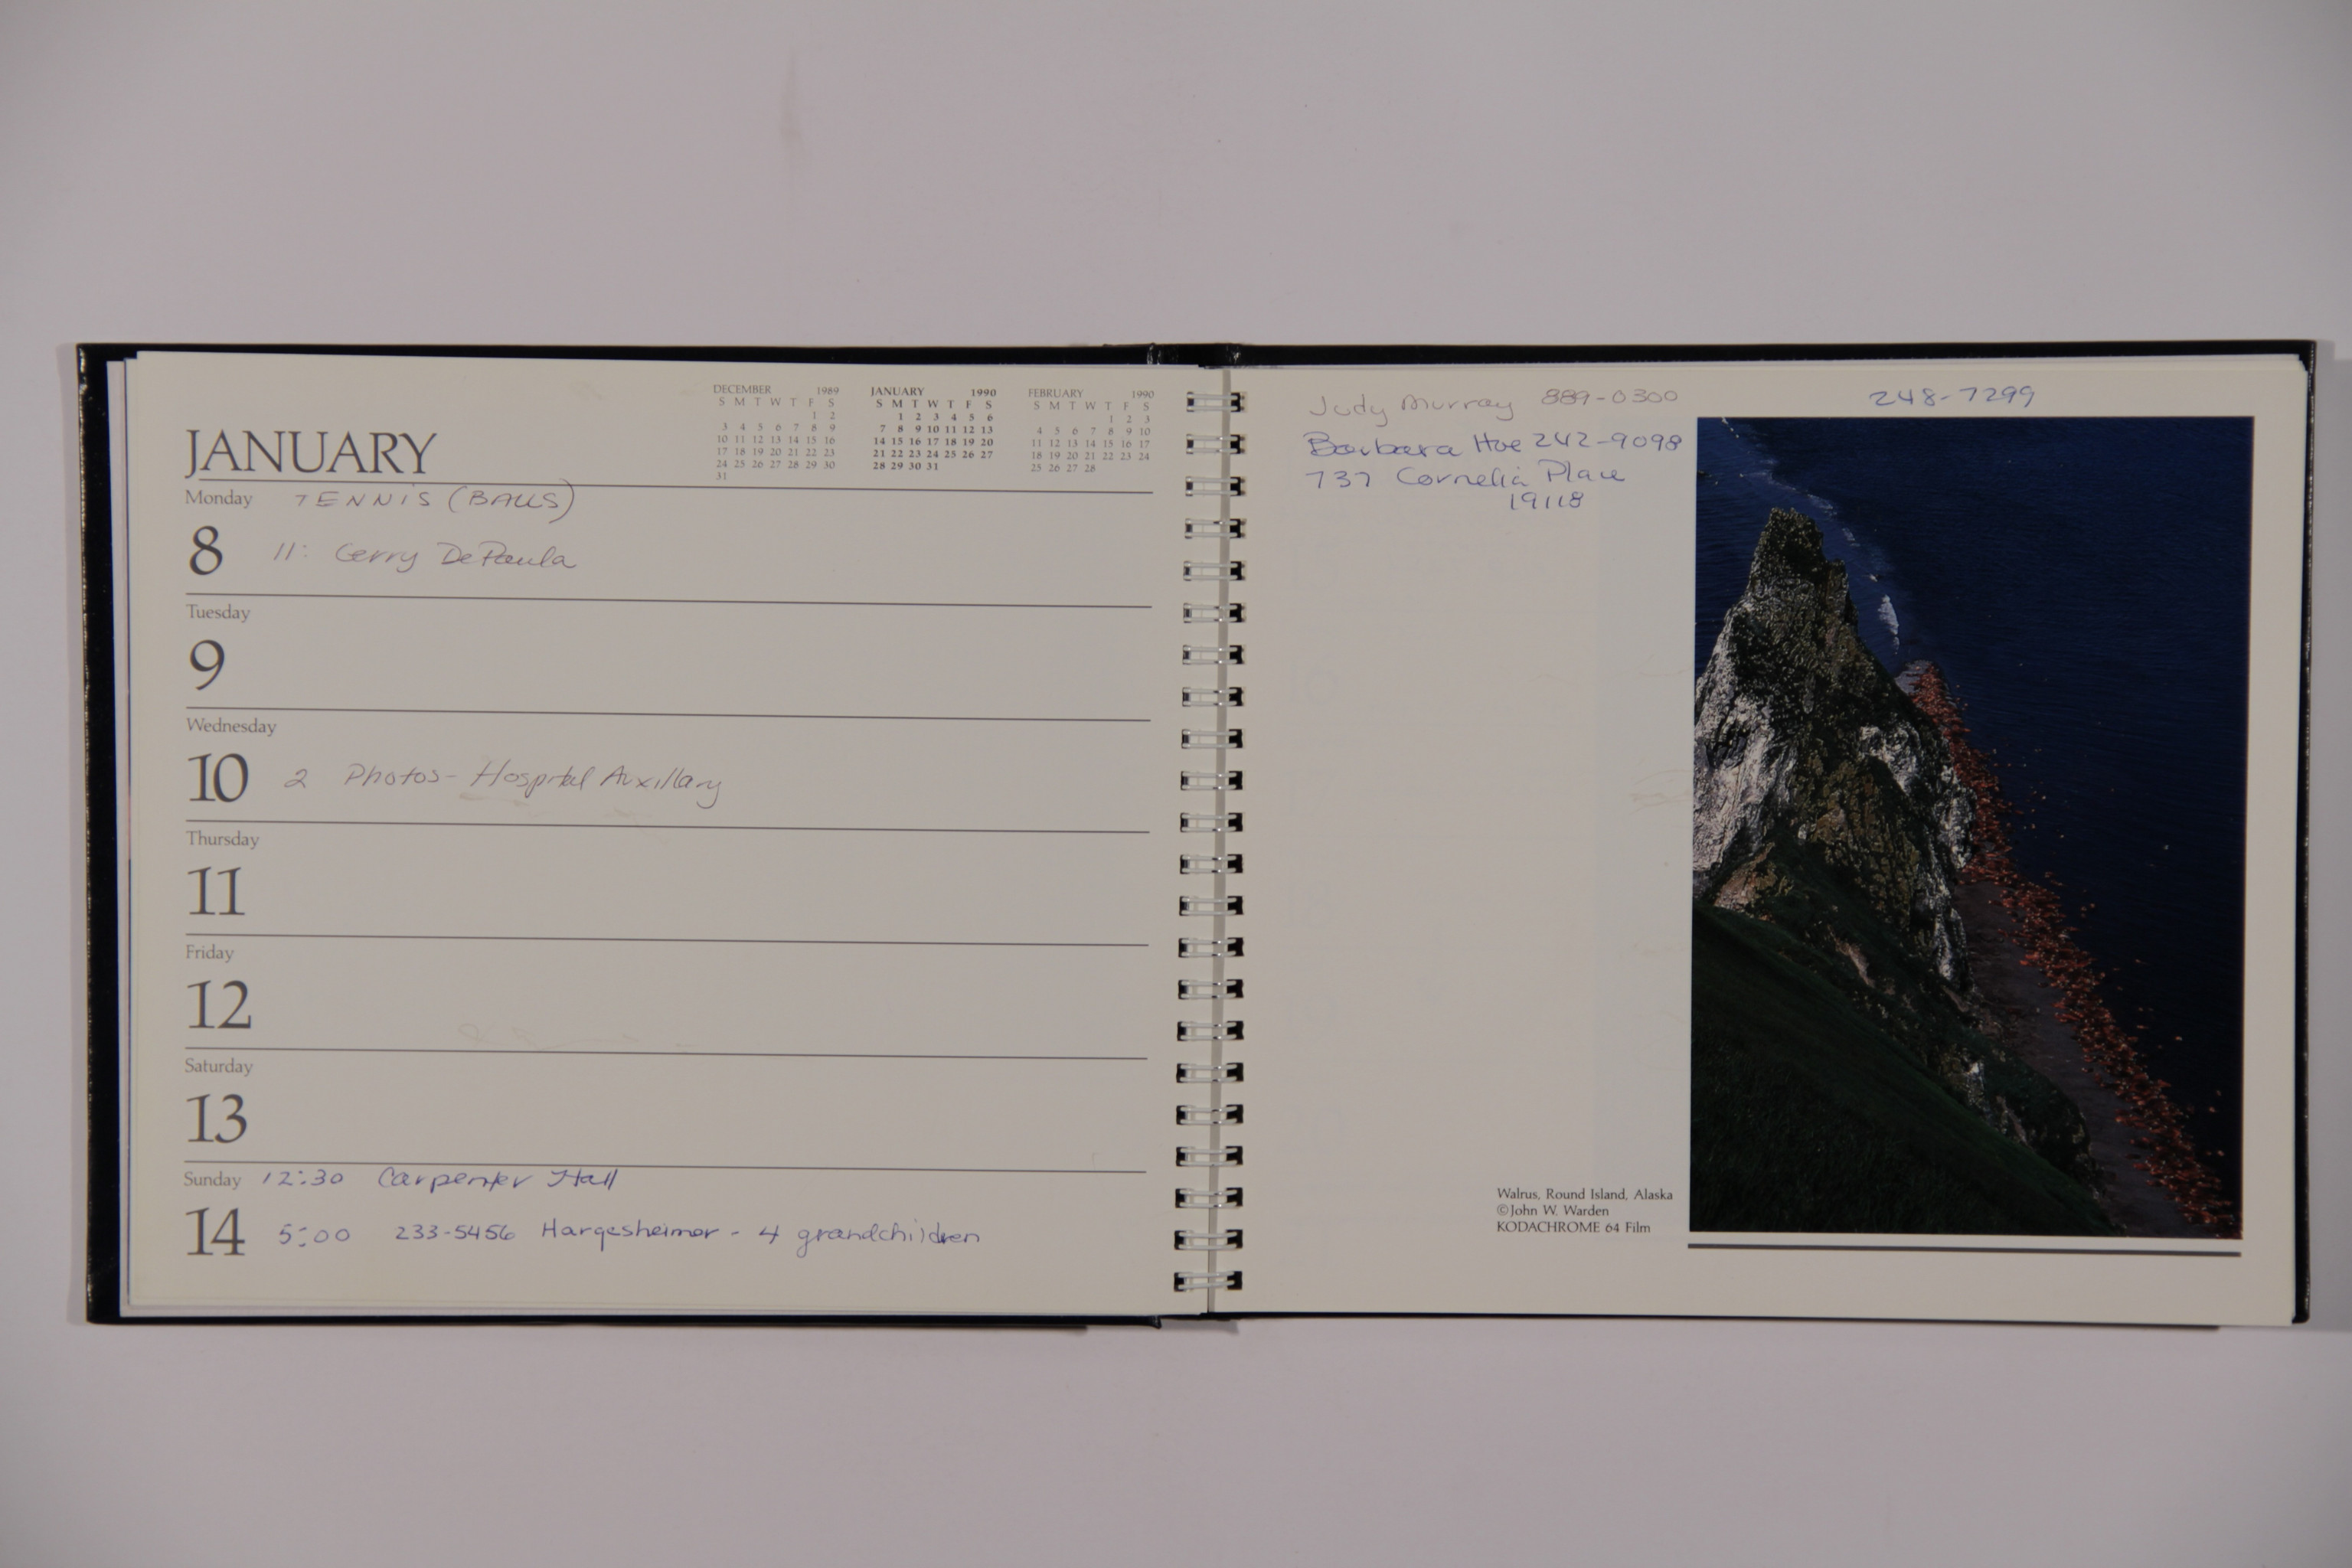 DECEMBER 1989
S M T W T F S
1 2
3 4 5 6 7 8 9
10 11 12 13 14 15 16
17 18 19 20 21 22 23
24 25 26 27 28 29 30
31
JANUARY 1990
S M T W T F S
1 2 3 4 5 6
7 8 9 10 11 12 13
14 15 16 17 18 19 20
21 22 23 24 25 26 27
28 29 30 31
FEBRUARY 1990
S M T W T F S
1 2 3
4 5 6 7 8 9 10
11 12 13 14 15 16 17
18 19 20 21 22 23 24
25 26 27 28
JANUARY
Monday TENNIS (BALLS)
8 11: Gerry DePaula
Tuesday
9
Wednesday
10 2 Photos - Hospital Auxillary
Thursday
11
Friday
12
Saturday
13
Sunday 12:30 Carpenter Hall
14 5:00 233-5456 Hargesheimer - 4 grandchildren
Judy Murray 889-0300
248-7299
Barbara 242-9098
737 Cornelia Place
19118
Walrus, Round Island, Alaska
©John W. Warden
KODACHROME 64 Film